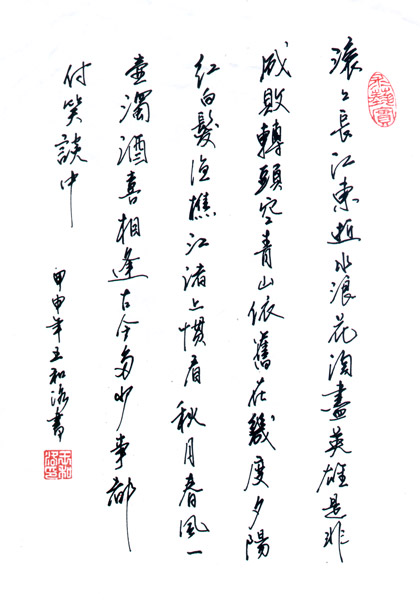 滚々長江東逝水浪花淘盡英雄是非
成敗轉頭空青山依舊在幾度夕陽
红白髮渔樵江渚上慣看秋月春風一
壺濁酒喜相逢古今多少事都
付笑談中
甲申年王和書